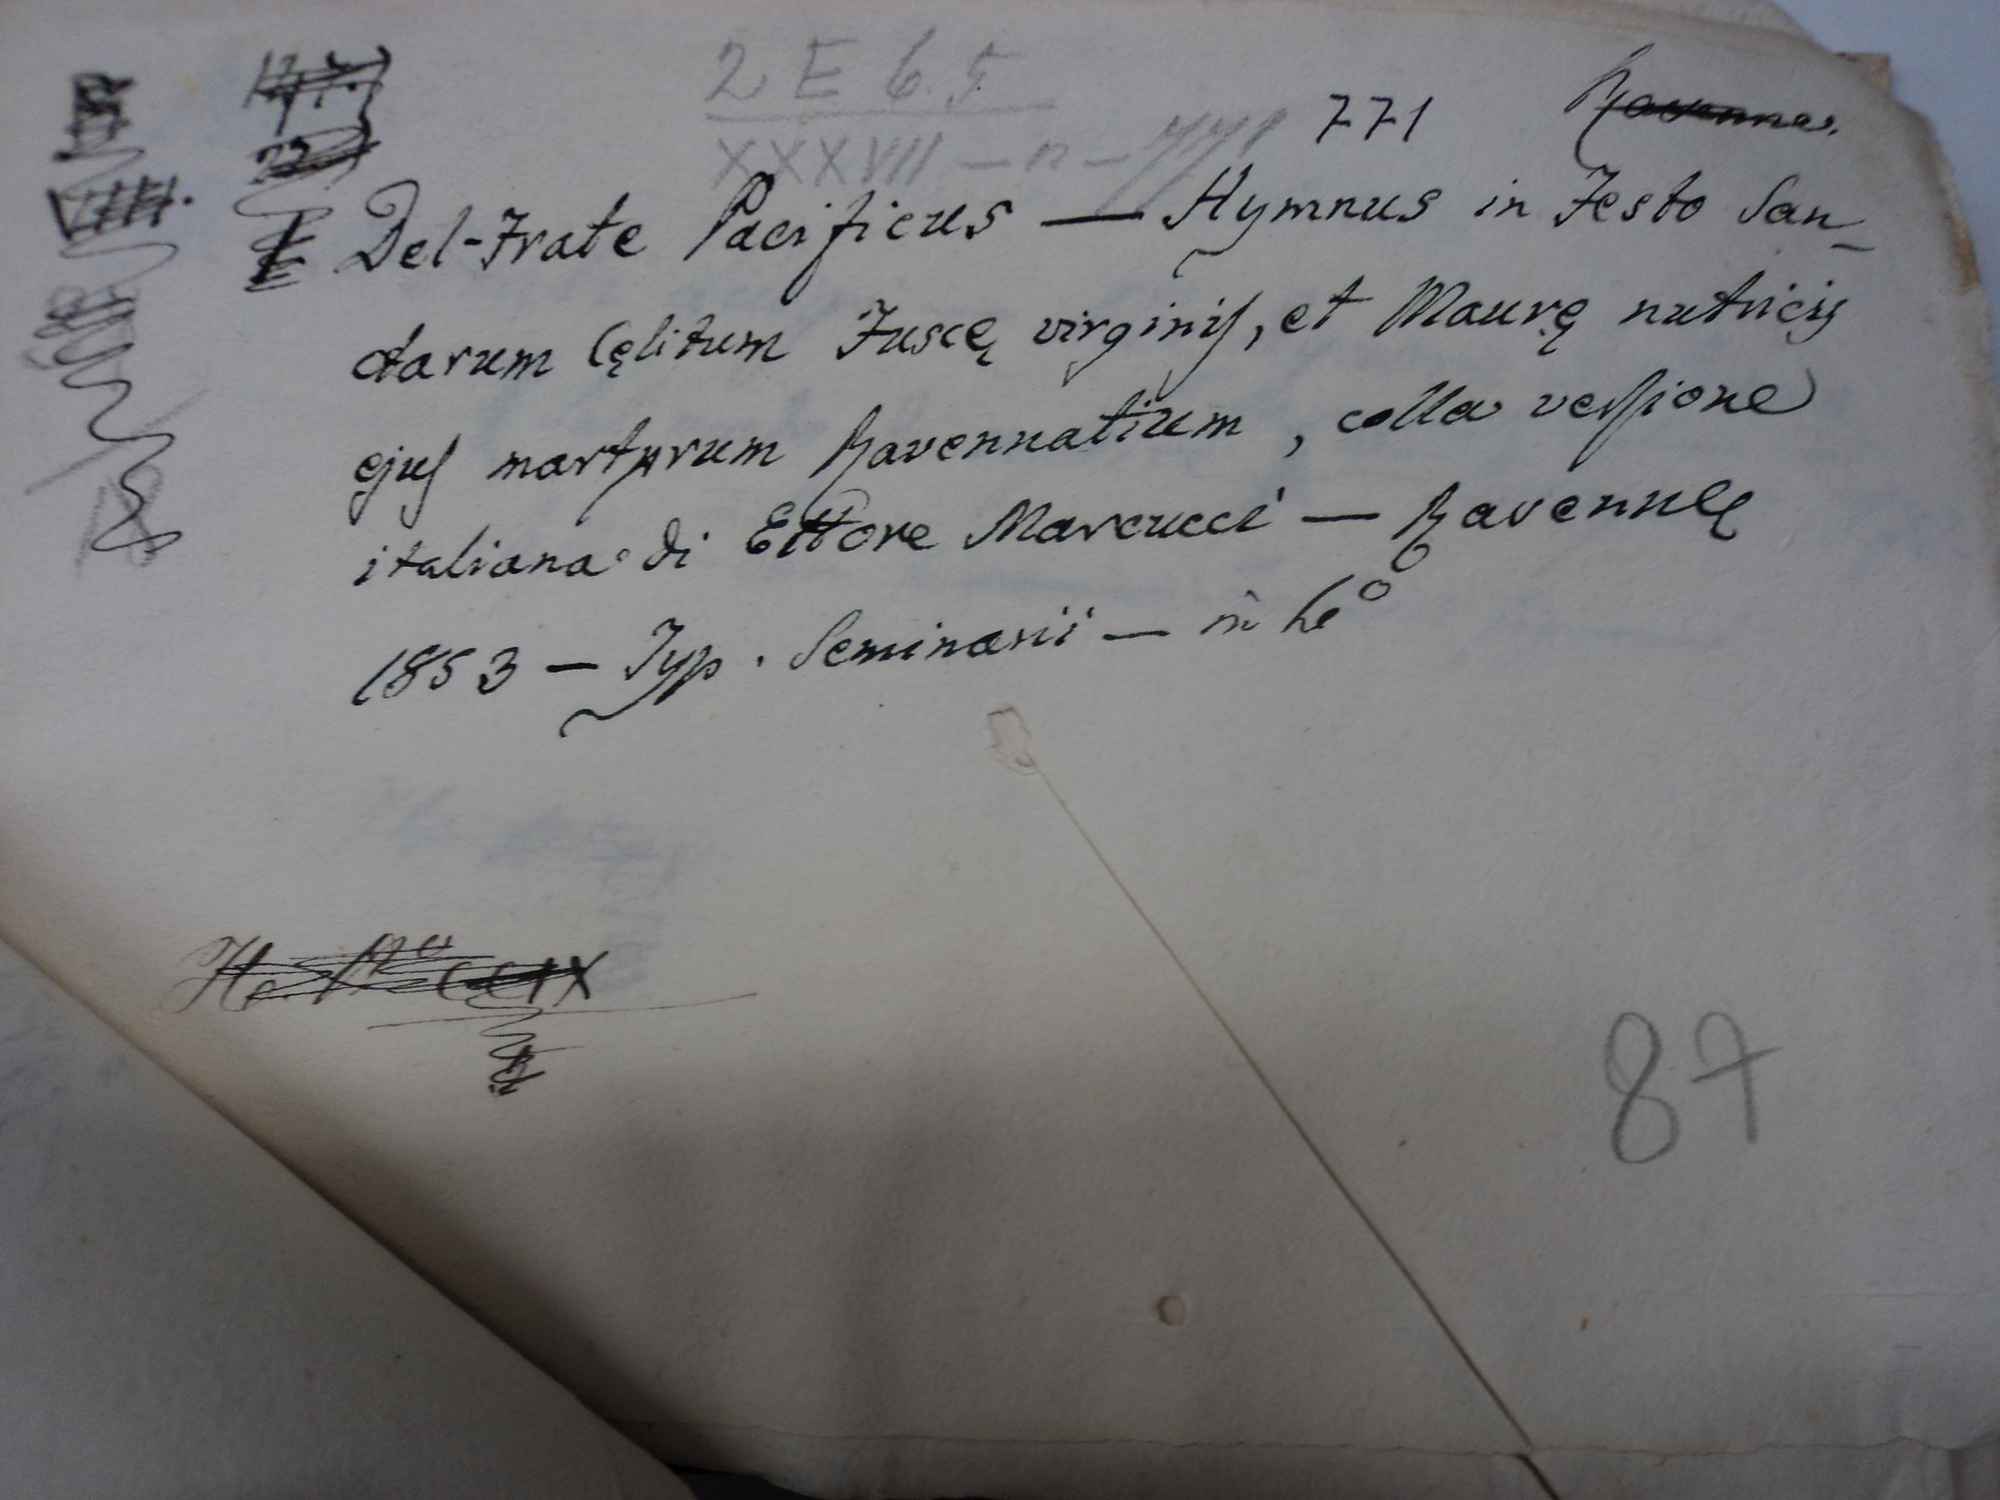 2 E 6.5
XXXVII — n — 771
771
Ravenna.
Del-Frate Pacificus — Hymnus in Festo San-
ctarum Cęlitum Fuscę virginis, et Maurę nutricis
ejus martyrum Ravennatium, colla versione
italiana di Ettore Marcucci — Ravennę
1853 — Typ. Seminarii — in 4°
87